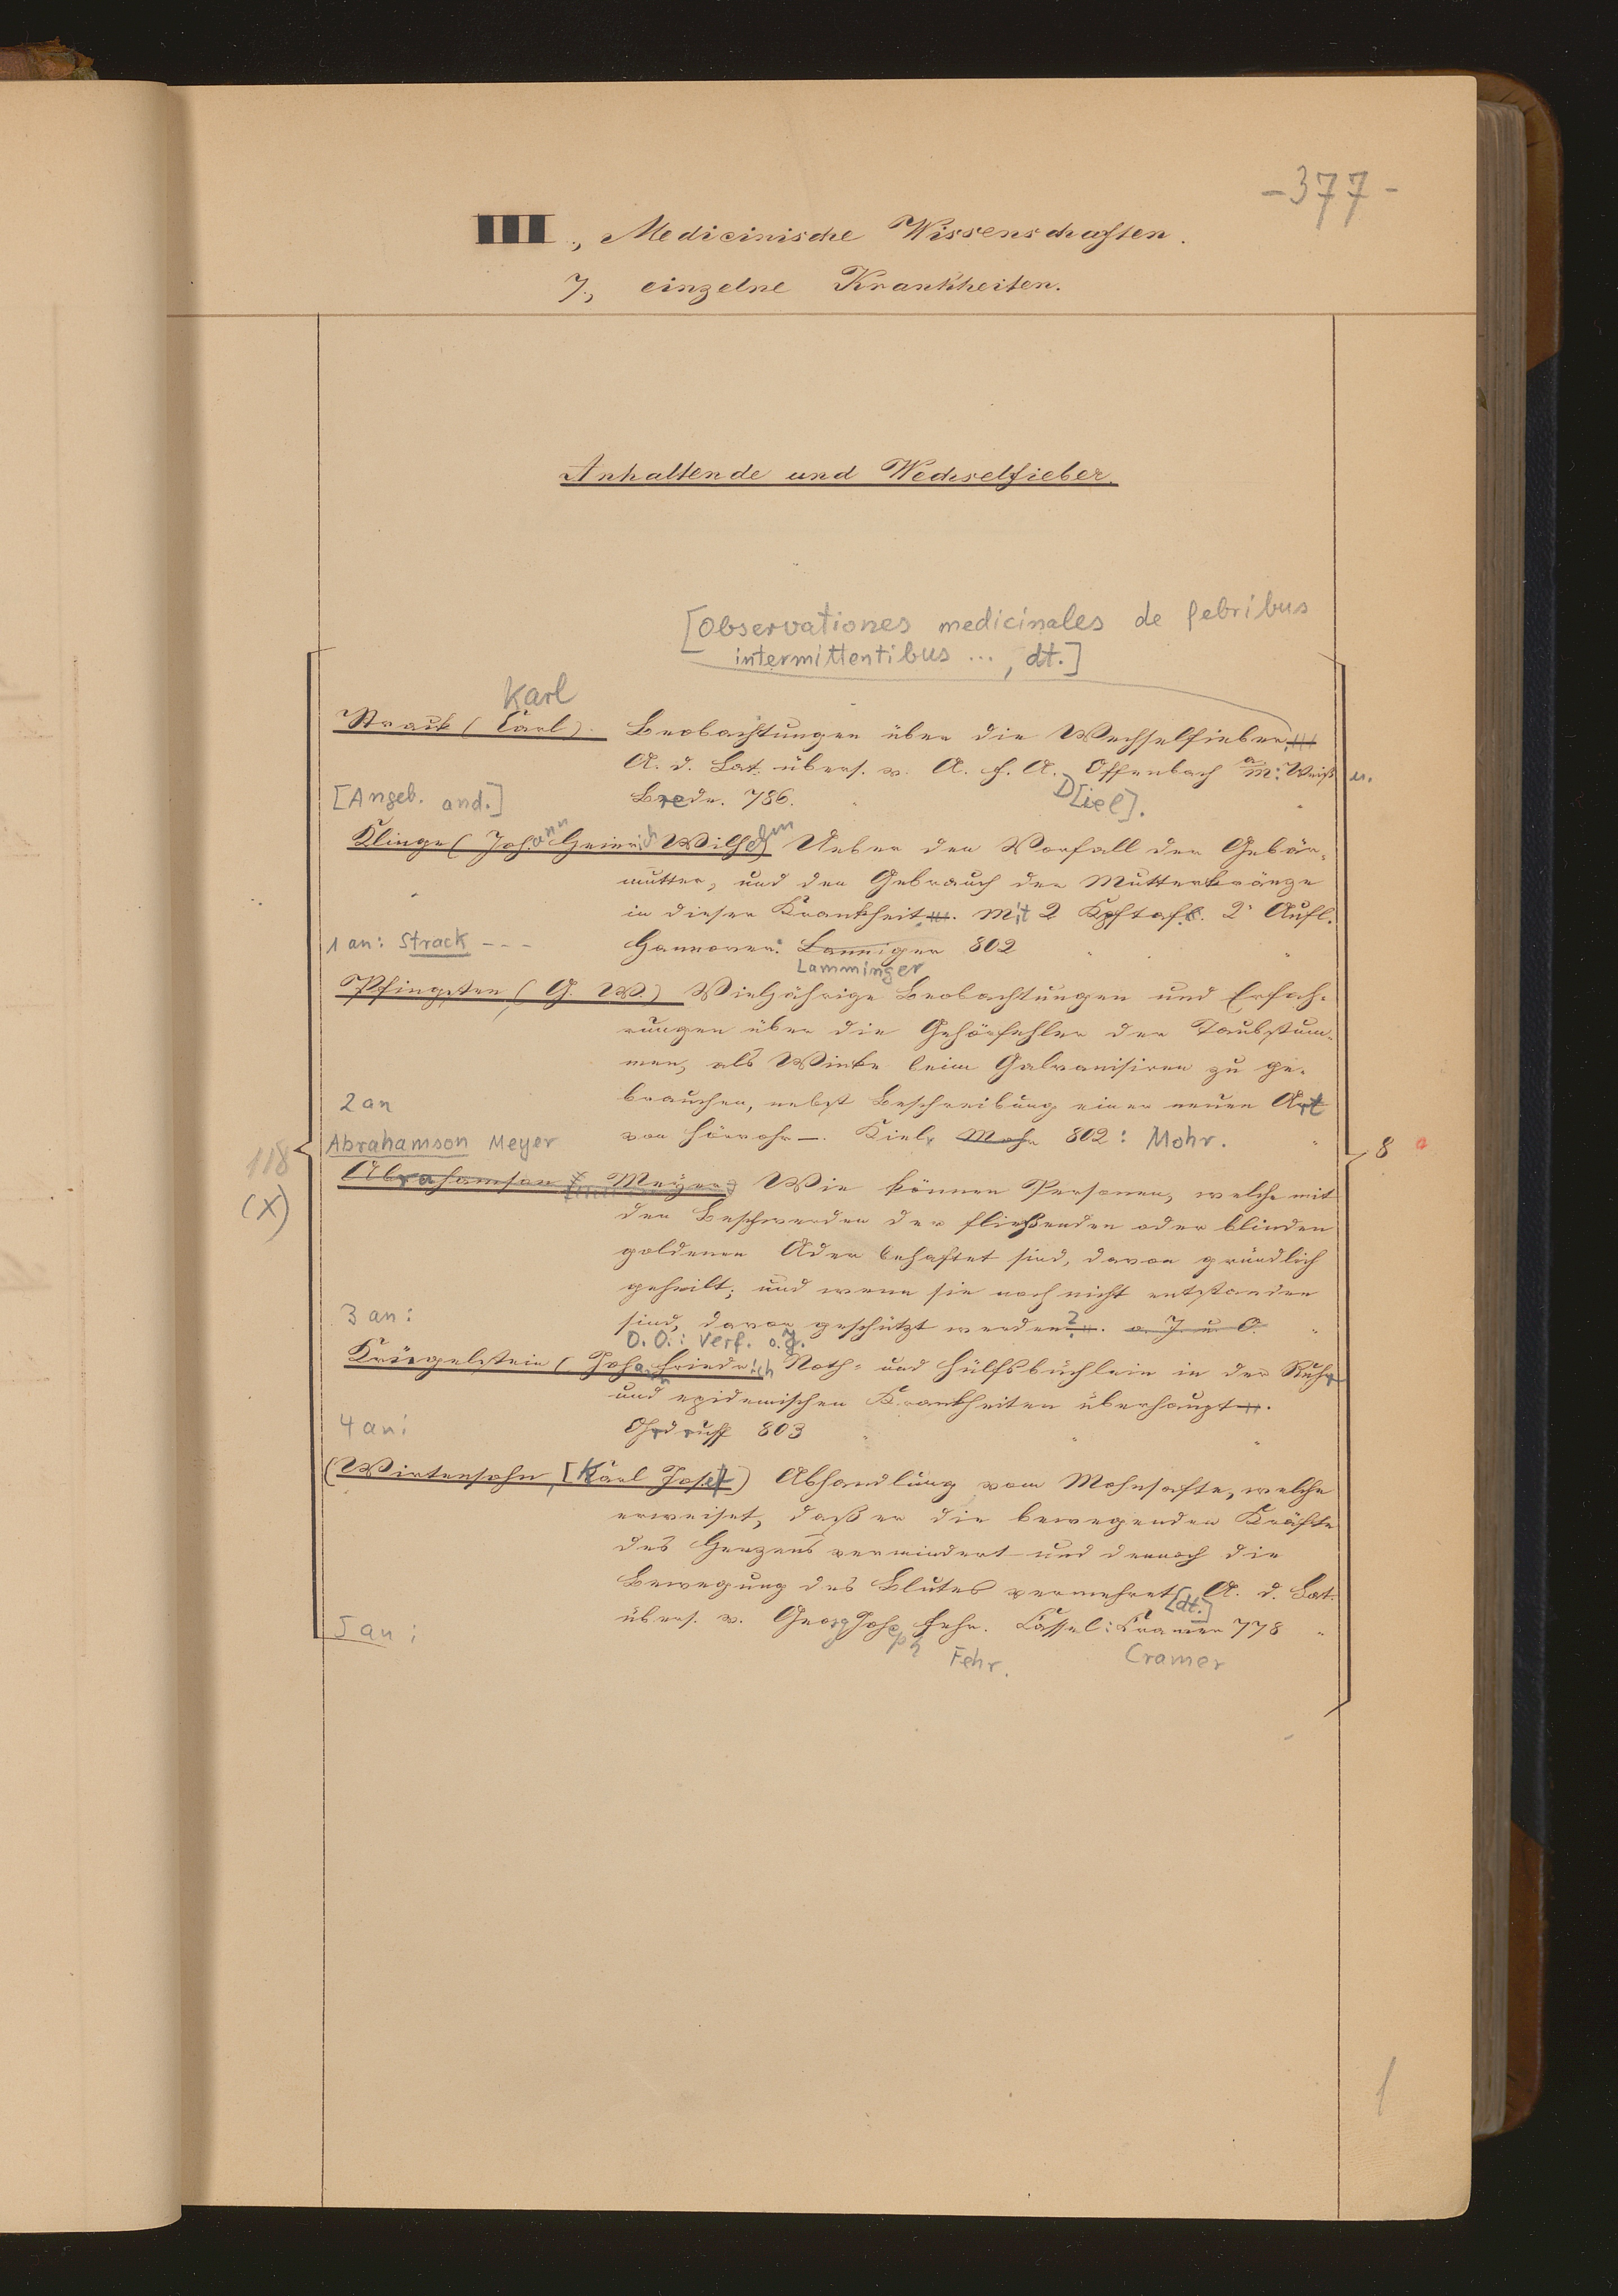 -377-
III., Medicinische Wissenschaften.
7., einzelne Krankheiten.
Anhaltende und Wechselfieber.
[Observationes medicinales de febribus
intermittentibus ..., dt.]
Karl
Strack (Carl). Beobachtungen über die Wechselfieber.
A. d. Lat. übers. v. A. F. A. Offenbach a/M: Weiß u.
[Angeb. and.] Brede. 786. D[iel].
Klinge (Johann Heinrich Wilhelm Ueber den Vorfall der Gebär-
mutter, und den Gebrauch der Mutterkränze
in dieser Krankheit. Mit 2 Kpftafl. 2' Aufl.
1 an: Strack --- Hannover: Lanniger 802 "
Lamminger
Pfingsten (G. W.) Vieljährige Beobachtungen und Erfah-
rungen über die Gehörfehler der Taubstum-
men, als Winke beim Galvanisiren zu ge-
2 an brauchen, nebst Beschreibung einer neuen Art
Abrahamson Meyer von Hörrohr—. Kiel, Mohr 802: Mohr. "
118 8
(X)
Abrahamson Meyer) Wie können Personen, welche mit
den Beschwerden der fließenden oder blinden
goldenen Ader behaftet sind, davon gründlich
geheilt; und wenn sie noch nicht entstanden
3 an: sind, davor geschützt werden?. o. J. u. O. "
O. O.: Verf. o. J.
Krügelstein (Johann Friedrich Noth- und Hülfsbüchlein in der Ruhr
und epidemischen Krankheiten überhaupt.
4 an: Ohrdruff 803 " " "
(Wirtensohn, [Karl Josef) Abhandlung vom Mohnsafte, welche
erweiset, daß er die bewegenden Kräfte
des Herzens vermindert und dennoch die
Bewegung des Blutes vermehret. A. d. Lat.
[dt.]
5 an: übers. v. Georg Joseph Fehr. Cassel: Cramer 778 "
Fehr. Cramer
1